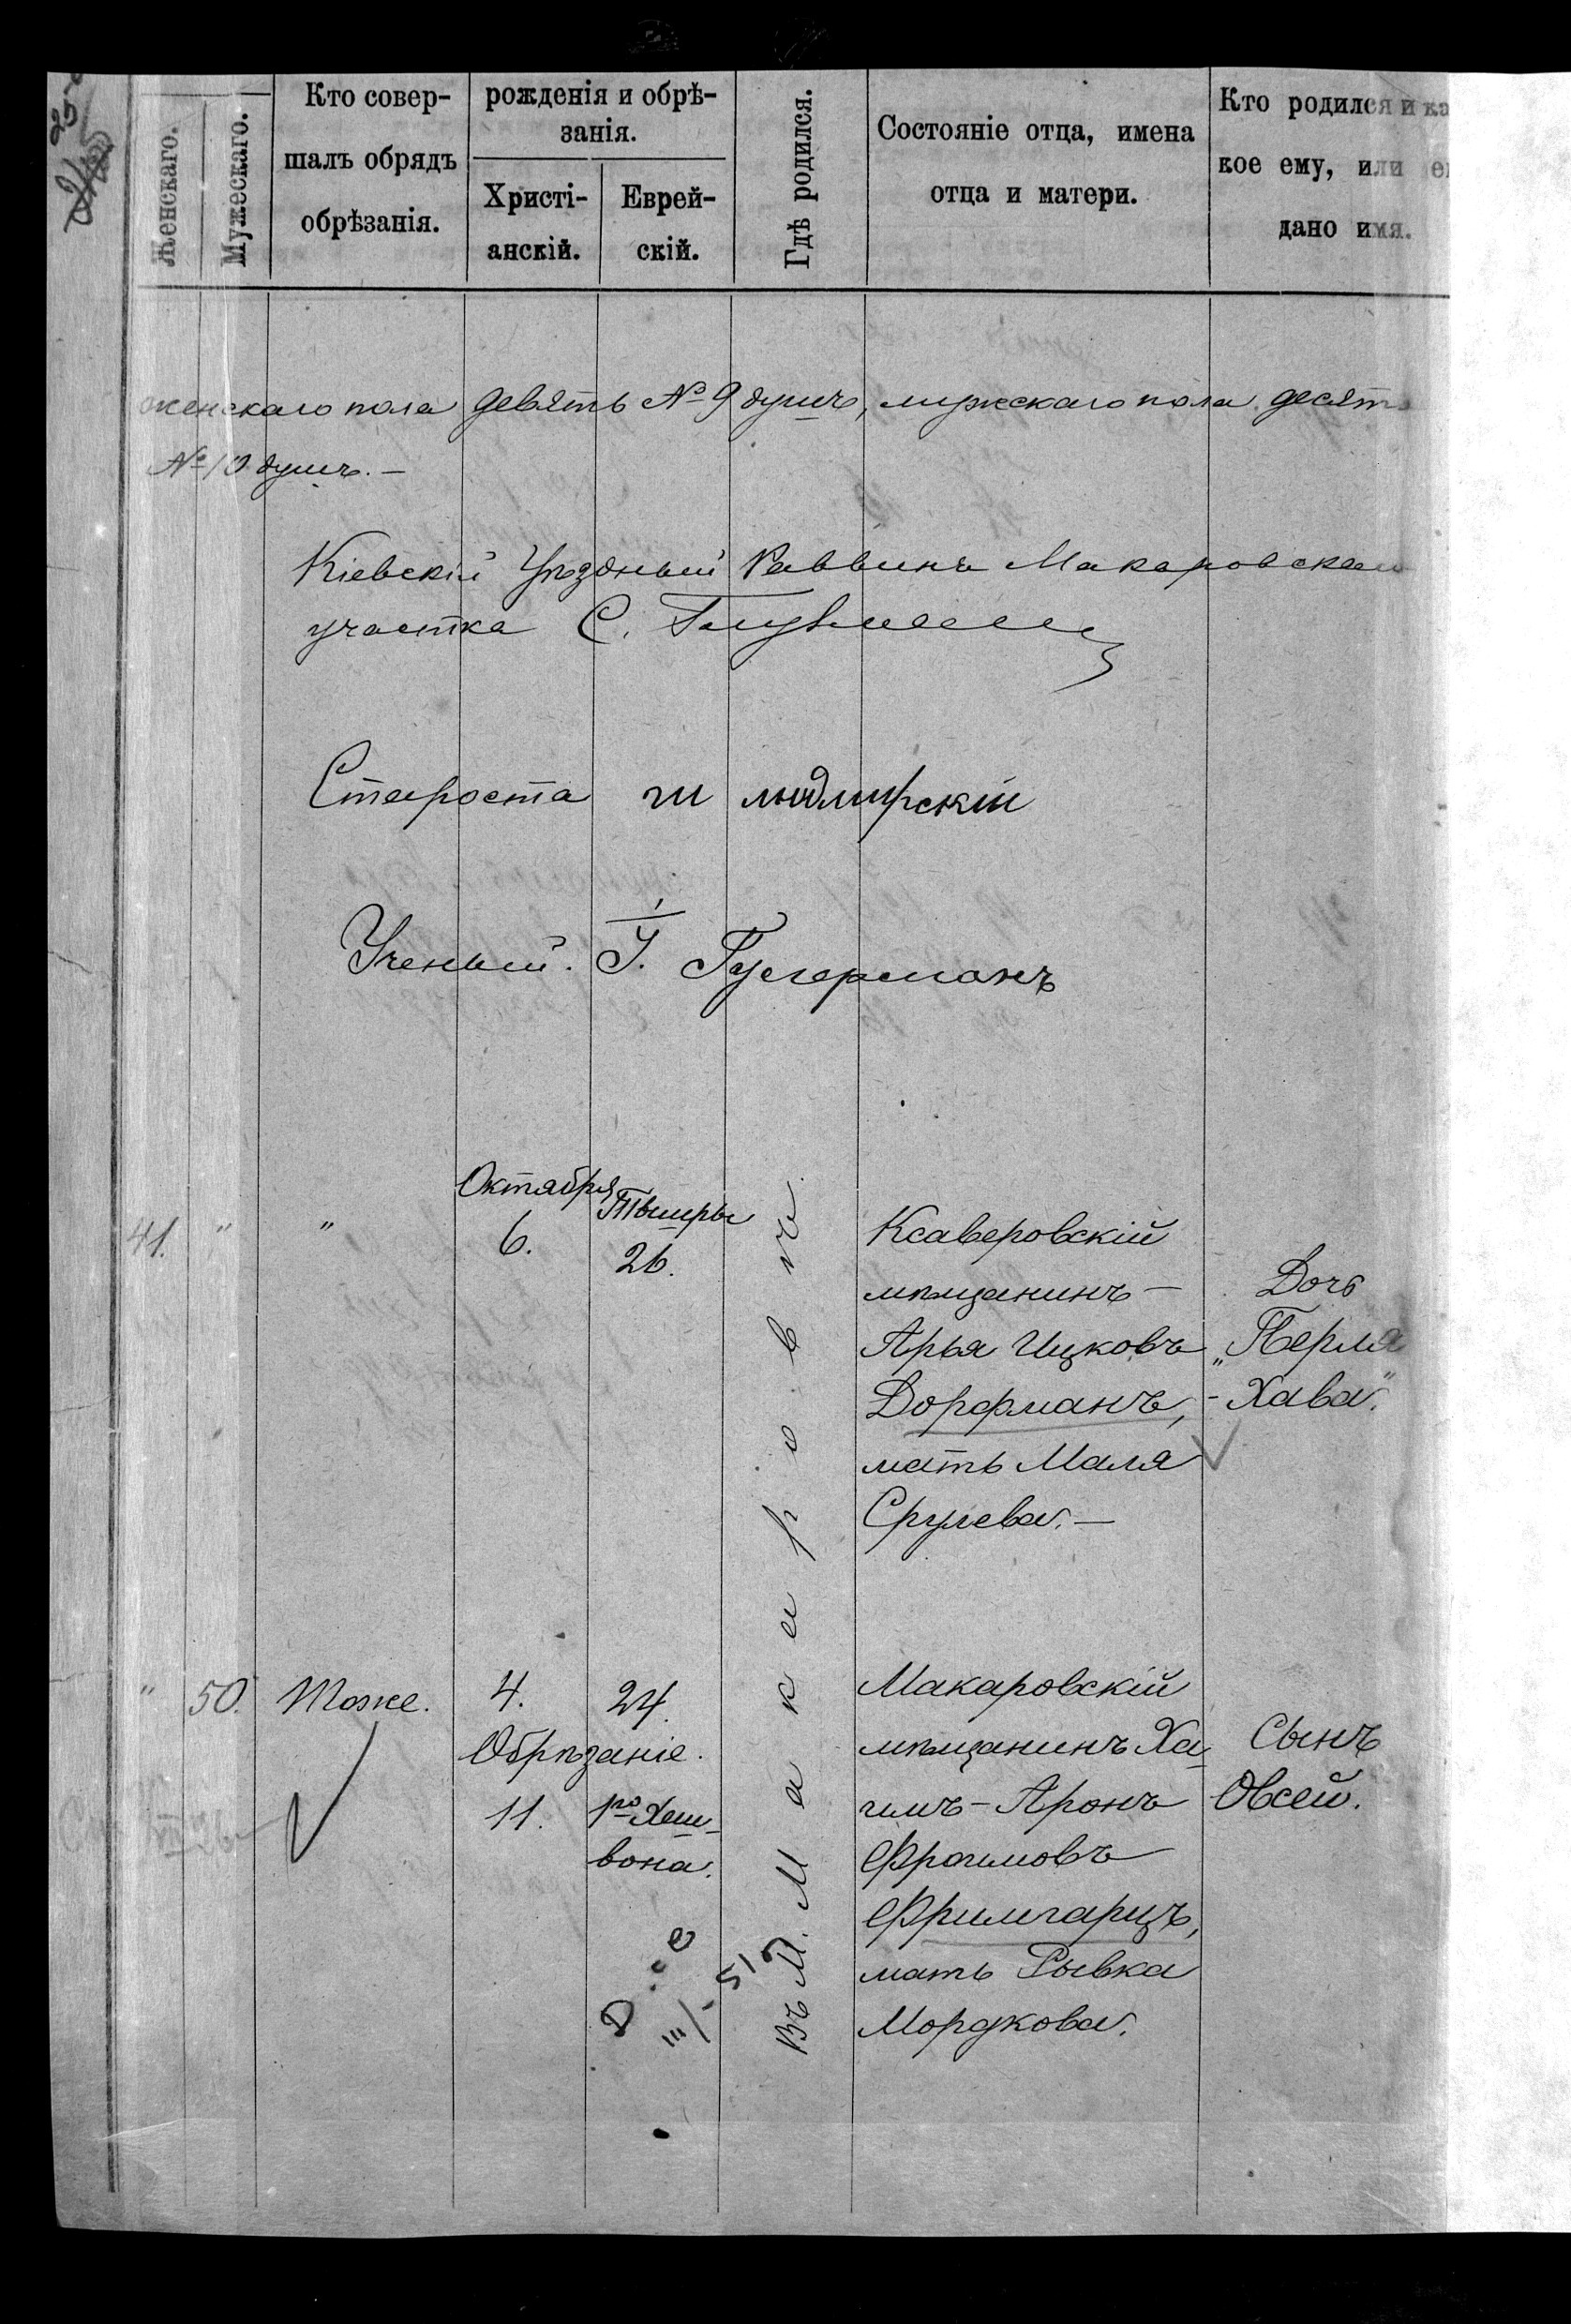 Женскаго.
Мужескаго.
Кто совер-
шалъ обрядъ
обрѣзанія.
рожденія и обрѣ-
занія.
Христі-
анскій.
Еврей-
скій.
Гдѣ родился.
Состояніе отца, имена
отца и матери.
Кто родился и ка
кое ему, или е
дано имя.
женскаго пола девять № 9 душъ, мужескаго пола десять
№ 10 душъ. —
Кіевскій Уѣздный Раввинъ Макаровскаго
участка С.
Староста Ш Людмирскій
Ученый. І. Гузерманъ
41. " "
Октября
6.
Тышры
26.
Ксаверовскій
мѣщанинъ —
Арья Ицковъ
Дорфманъ,
мать Маля
Срулева. —
Дочь
„Перля
- Хава".
Въ М. Макаровѣ.
" 50. Тоже. 4. 24.
Обрѣзаніе.
11. 1го Хеш-
вона.
Макаровскій
мѣщанинъ Ха-
имъ-Аронъ
Фроимовъ
Фримгарцъ,
мать Рывка
Мордкова.
Сынъ
Овсей.